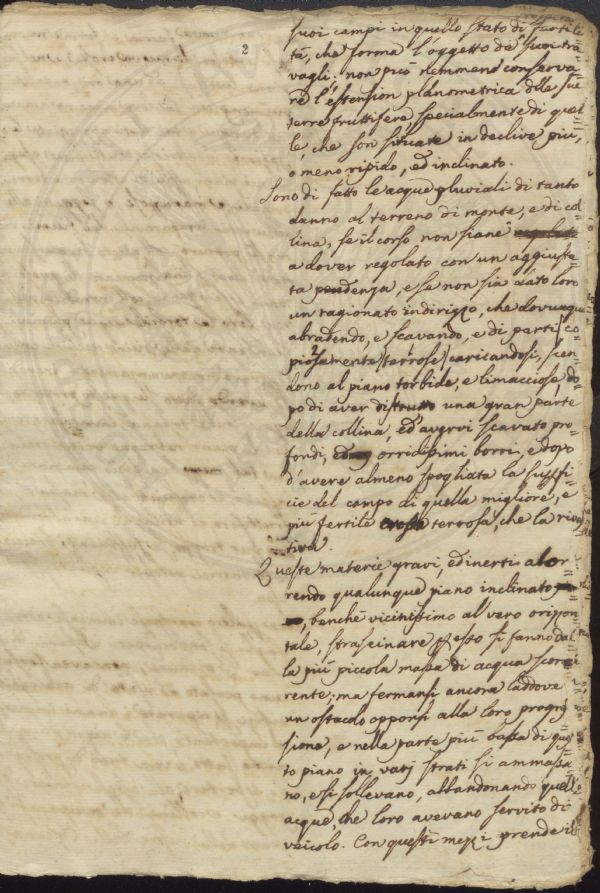 2
suoi campi in quello stato di fertili=
tà, che forma l'oggetto de' suoi tra=
vagli; non può nemmeno conserva=
re l'estension planometrica dlle sue
terre fruttifere specialmente di quel=
le che son situate in declive più,
o meno ripido, ed inclinato.
Sono di fatto le acque pluviali di tanto
danno al terreno di monte, e di col=
lina, se il corso non siane
a dover regolato con un aggiusta=
ta pendenza, e se non sia dato loro
un ragionato indirizzo, che dovunque
abradendo, e scavando, e di parti (co=
piosamente) terrose caricandosi, scen=
dono al piano torbide, e limacciose, do=
po di aver distrutto una gran parte
della collina, ed avervi scavato pro=
fondi, ed orridissimi borri, e dopo
d'avere almeno spogliata la superfi=
cie del campo di quella migliore, e
più fertile crosta terrosa, che la rives=
tiva.
Queste materie gravi, ed inerti abor=
rendo qualunque piano inclinato
, benché vicinissimo al vero orizon=
tale, strascinare presto si fanno dal=
la più piccola massa di acqua scor=
rente; ma fermansi ancora laddove
un ostacolo opponsi alla loro progres=
sione, e nella parte più bassa di ques=
to piano in varj strati si ammassa=
no, e si sollevano, abbandonando quelle
acque, che loro avevano servito di
veicolo. Con questi mezzi prende il